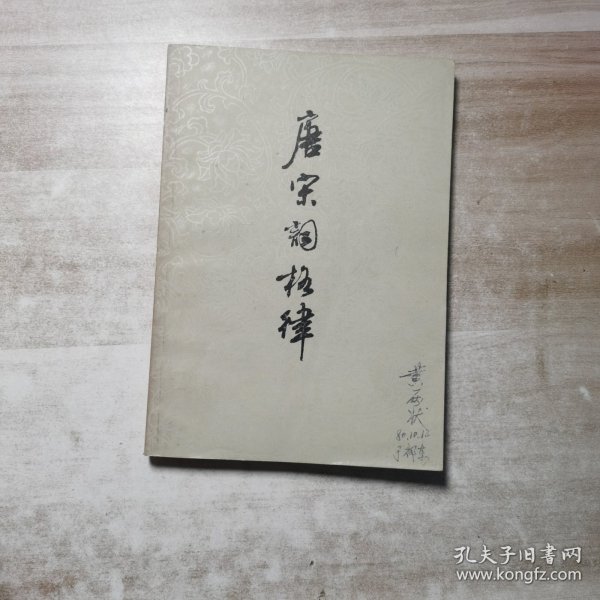 唐宋词格律
黄
80.10.12
于祁东
孔夫子旧书网
www.kongfz.com